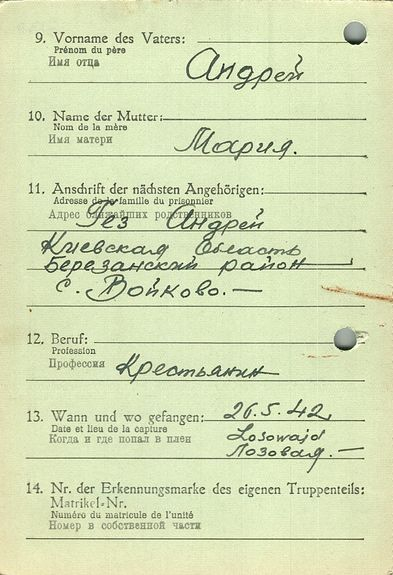 9. Vorname des Vaters:
Prénom du père
Имя отца
Андрей
10. Name der Mutter:
Nom de la mère
Имя матери
Мария.
11. Anschrift der nächsten Angehörigen:
Adresse de la famille du prisonnier
Адрес ближайших родственников
Гез Андрей
Киевская Область
Березанский район
с. Войково.—
12. Beruf:
Profession
Профессия
Крестьянин
13. Wann und wo gefangen: 26.5.42
Date et lieu de la capture
Когда и где попал в плен
Losowajd
Лозовая.—
14. Nr. der Erkennungsmarke des eigenen Truppenteils:
Matrikel-Nr.
Numéro du matricule de l'unité
Номер в собственной части